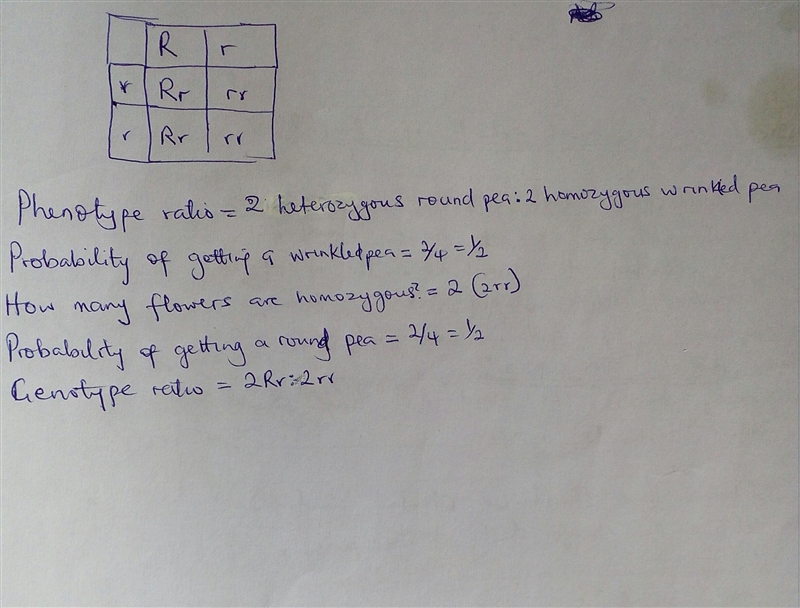 R r
r Rr rr
r Rr rr
Phenotype ratio = 2 heterozygous round pea : 2 homozygous wrinkled pea
Probability of getting a wrinkled pea = 2/4 = 1/2
How many flowers are homozygous? = 2 (2rr)
Probability of getting a round pea = 2/4 = 1/2
Genotype ratio = 2Rr : 2rr